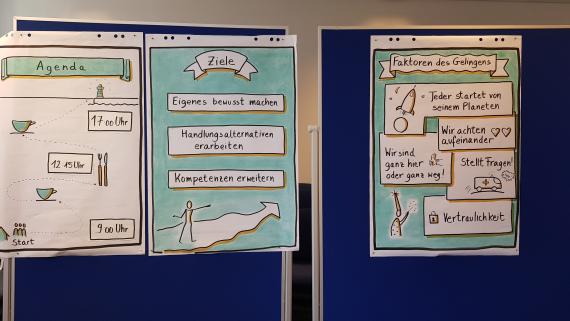 Agenda
17 00 Uhr
12 15 Uhr
9 00 Uhr
Start
Ziele
Eigenes bewusst machen
Handlungsalternativen
erarbeiten
Kompetenzen erweitern
Faktoren des Gelingens
Jeder startet von
seinem Planeten
Wir achten
aufeinander
Wir sind
ganz hier
oder ganz weg!
Stellt Fragen!
Vertraulichkeit